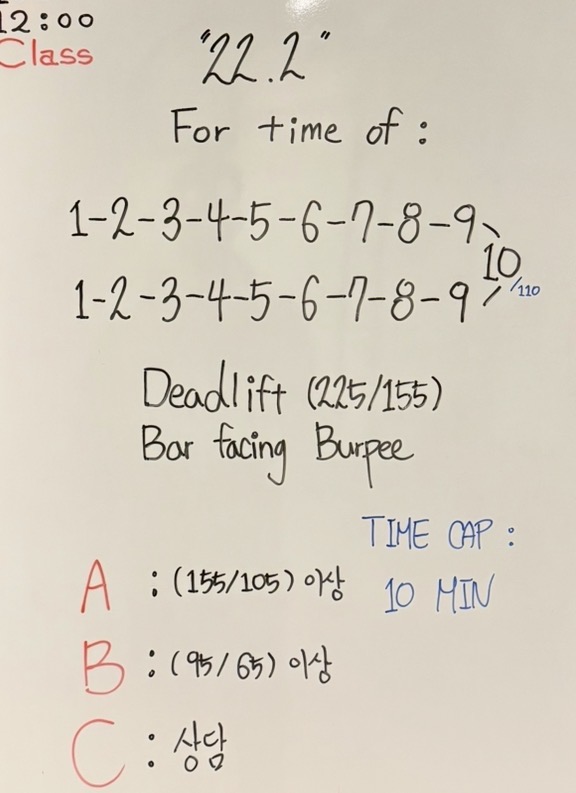 12:00
Class
"22.2"
For time of :
1-2-3-4-5-6-7-8-9
10
/110
1-2-3-4-5-6-7-8-9
Deadlift (225/155)
Bar facing Burpee
TIME CAP :
10 MIN
A : (155/105) 이상
B : (95/65) 이상
C : 상담